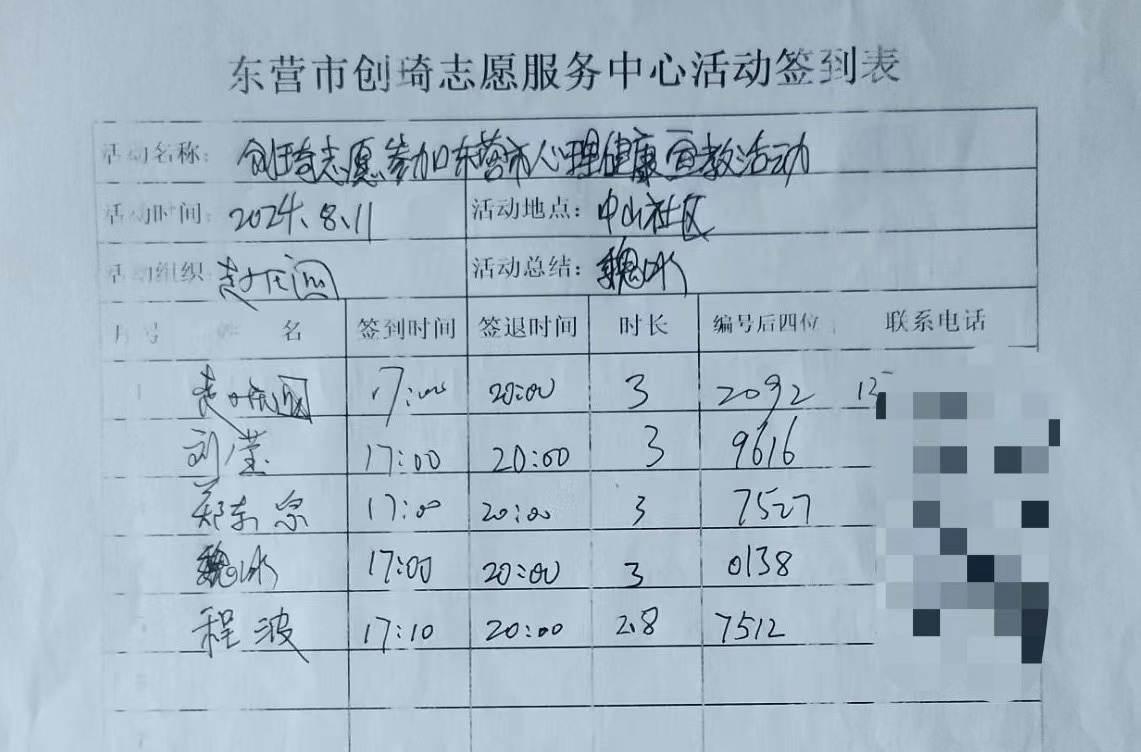 东营市创琦志愿服务中心活动签到表
活动名称: 创琦志愿参加东营市心理健康宣教活动
活动时间: 2024.8.11 活动地点: 中山社区
活动组织 活动总结: 魏冰
序号 姓名 签到时间 签退时间 时长 编号后四位 联系电话
1 17:00 20:00 3 2092
刘莹 17:00 20:00 3 9616
郑东宗 17:00 20:00 3 7527
魏冰 17:00 20:00 3 0138
程波 17:10 20:00 2.8 7512